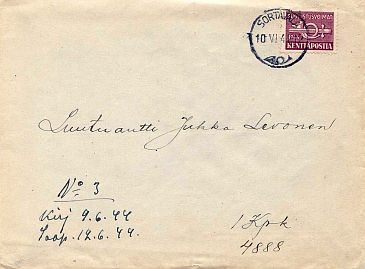 SORTAVALA
10 VI 4
PUOLUSTUSVOIMAT
KENTTÄPOSTIA
Luutnantti Jukka Levonen
No 3
Kirj 9.6.44
Saap. 12.6.44.
1 Kprk
4888